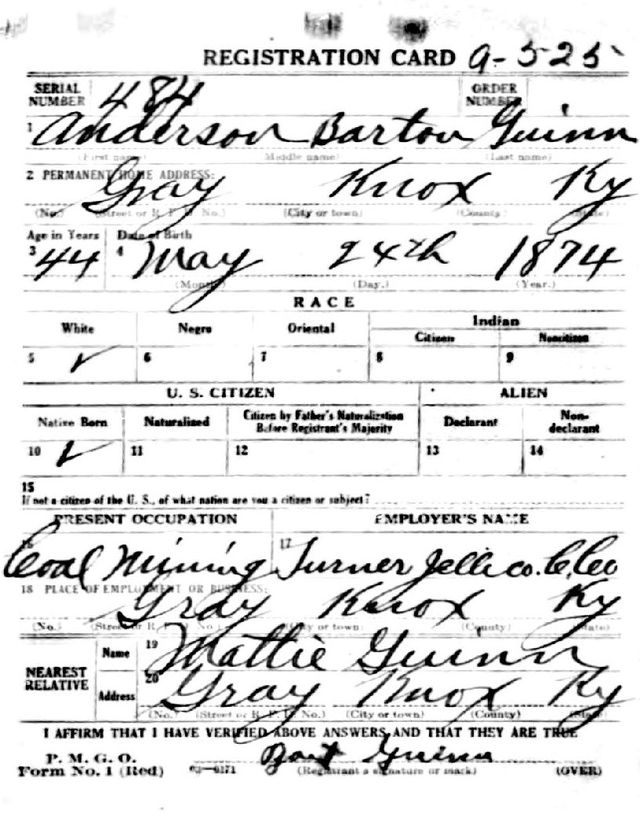 REGISTRATION CARD 9-525
SERIAL NUMBER 484 ORDER NUMBER
1 Anderson Barton Guinn
(First name) (Middle name) (Last name)
2 PERMANENT HOME ADDRESS:
Gray Knox Ky
(No.) (Street or R. F. D. No.) (City or town) (County) (State)
Age in Years Date of Birth
3 44 4 May 24th 1874
(Month.) (Day.) (Year.)
RACE
White Negro Oriental Indian
Citizen Noncitizen
5 ✓ 6 7 8 9
U. S. CITIZEN ALIEN
Native Born Naturalized Citizen by Father's Naturalization Before Registrant's Majority Declarant Non-declarant
10 ✓ 11 12 13 14
15
If not a citizen of the U. S., of what nation are you a citizen or subject?
PRESENT OCCUPATION EMPLOYER'S NAME
16 Coal Mining 17 Turner Jellico. C. Co
18 PLACE OF EMPLOYMENT OR BUSINESS:
Gray Knox Ky
(No.) (Street or R. F. D. No.) (City or town) (County) (State)
NEAREST RELATIVE Name 19 Mattie Guinn
Address 20 Gray Knox Ky
(No.) (Street or R. F. D. No.) (City or town) (County) (State)
I AFFIRM THAT I HAVE VERIFIED ABOVE ANSWERS AND THAT THEY ARE TRUE
P. M. G. O.
Form No. 1 (Red) 03—6171 Bart Guinn
(Registrant's signature or mark) (OVER)